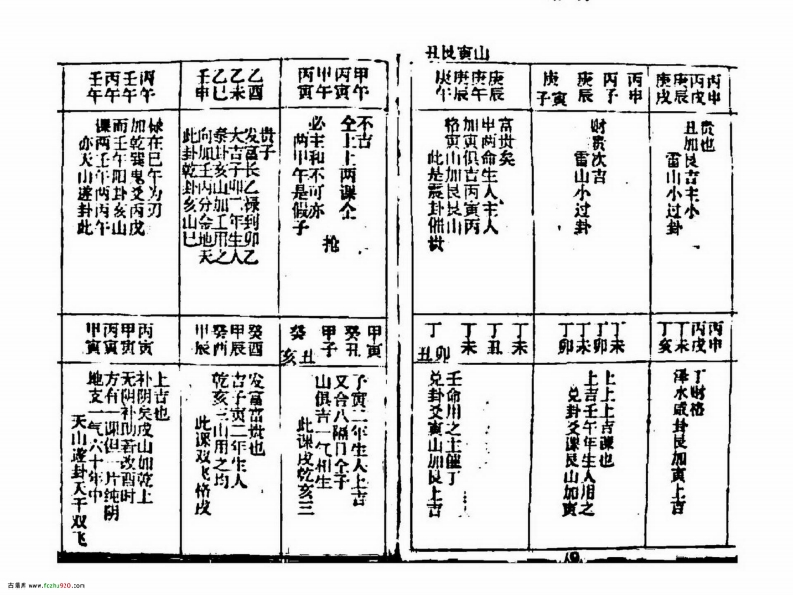 丑艮寅山
丙申
丙戌
庚辰
庚戌
贵也
丑加艮吉主小
雷山小过卦
丙申
丙子
庚辰
庚寅
子
财贵次吉
雷山小过卦
庚辰
庚午
庚辰
庚午
富贵矣
申两命生人主人
加寅俱吉丙寅丙
格寅山加艮艮山
此是震卦催贵
丙申
丙戌
丁未
丁亥
丁财格
泽水咸卦艮加寅上吉
丁未
丁卯
丁未
丁卯
上上上吉课也
上吉壬午年生人用之
兑卦爻课艮山加寅
丁未
丁丑
丁未
丁卯
丑
壬命用之主催丁
兑卦爻寅山加艮上吉
甲午
丙寅
甲午
丙寅
不吉
仝上上两课仝
必主和不可亦
两甲午是假子
抢
乙酉
乙未
乙巳
壬申
贵子
发富长乙禄到卯乙
大吉子卯二年生人
祭卦亥山加工用之
向加壬丙分金地天
此卦乾卦亥山巳
丙午
壬午
丙午
壬午
禄在巳午为刃
加乾巽曳爻丙戌
而壬午阳卦亥山
课两壬午两丙午
亦天山遂卦此
甲寅
癸丑
甲子
癸丑
亥
子寅二年生人上吉
又合八隔口全子
山俱吉一气相生
此课戌乾亥三
癸酉
甲辰
癸酉
甲辰
发富富贵也
吉子寅二年生人
乾亥三山用之均
此课双飞格戌
丙寅
甲寅
丙寅
甲寅
上吉也
补阴矣戌山如乾上
无阴补助若改酉时
方有一课但一片纯阴
地支一气六十年中
天山遂卦天干双飞
古籍库 www.fczhu920.com